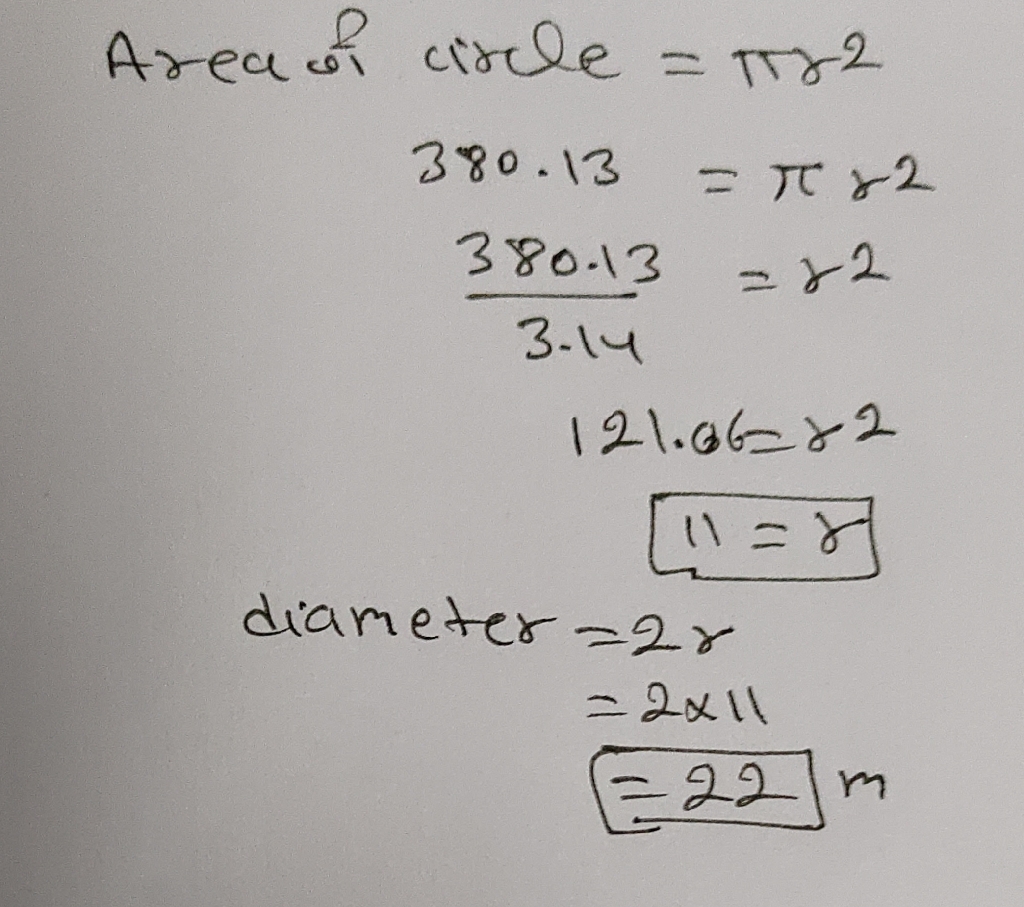 Area of circle = πr2
380.13 = πr2
380.13 = r2
3.14
121.06 = r2
11 = r
diameter = 2r
= 2x11
= 22 m